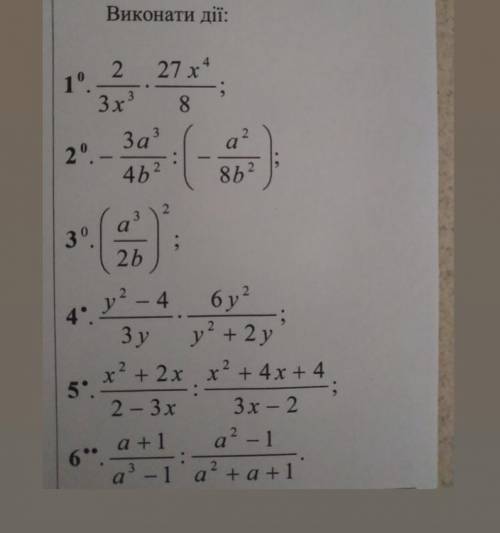 Виконати дії:
1⁰. 2/(3x³) · 27x⁴/8;
2⁰. −3a³/(4b²) : (−a²/(8b²));
3⁰. (a³/(2b))²;
4•. (y² − 4)/(3y) · 6y²/(y² + 2y);
5•. (x² + 2x)/(2 − 3x) : (x² + 4x + 4)/(3x − 2);
6••. (a + 1)/(a³ − 1) : (a² − 1)/(a² + a + 1).